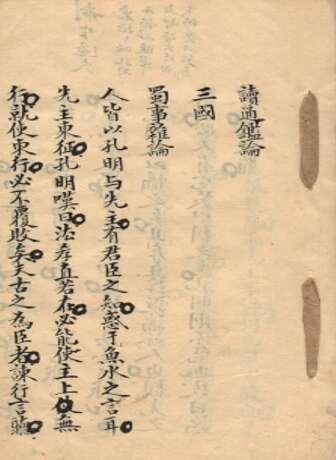 讀通鑑論
三國
蜀事雜論
人皆以孔明与先主有君臣之知惑于魚水之言耳
先主東征孔明嘆曰法孝直若在必能使主上無
行就使東行必不覆敗矣夫古之為臣者諫行言聽